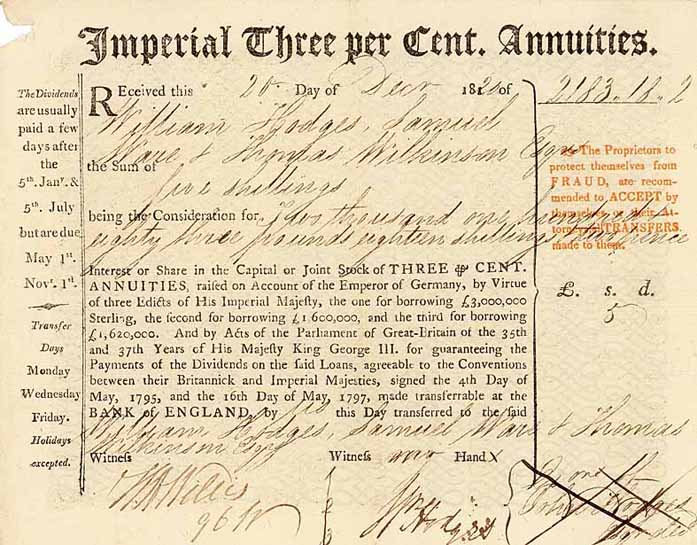 Imperial Three per Cent. Annuities.
The Dividends
are usually
paid a few
days after
the
5th. Janry. &
5th. July
but are due
May 1st.
Novr. 1st.
Transfer
Days
Monday
Wednesday
Friday.
Holidays
excepted.
REceived this 20 Day of Decr 1820 of
William Hodges, Samuel
Ware & Thomas Wilkinson Esqrs
the Sum of
five shillings
being the Consideration for Two thousand one hundred
eighty three pounds eighteen shillings & two pence
Interest or Share in the Capital or Joint Stock of THREE ⅌ CENT.
ANNUITIES, raised on Account of the Emperor of Germany, by Virtue
of three Edicts of His Imperial Majesty, the one for borrowing £3,000,000
Sterling, the second for borrowing £1,600,000, and the third for borrowing
£1,620,000. And by Acts of the Parliament of Great-Britain of the 35th
and 37th Years of His Majeſty King George III. for guaranteeing the
Payments of the Dividends on the said Loans, agreeable to the Conventions
between their Britannick and Imperial Majesties, signed the 4th Day of
May, 1795, and the 16th Day of May, 1797, made transferrable at the
BANK of ENGLAND, by us this Day transferred to the said
William Hodges, Samuel Ware & Thomas
Wilkinson Esqrs
Witneſs Witneſs our Hand
W Willis
Wm Hodges
2183.18.2
The Proprietors to
protect themselves from
FRAUD, are recom-
mended to ACCEPT by
themselves or their At-
tornies, all TRANSFERS
made to them.
£. s. d.
5